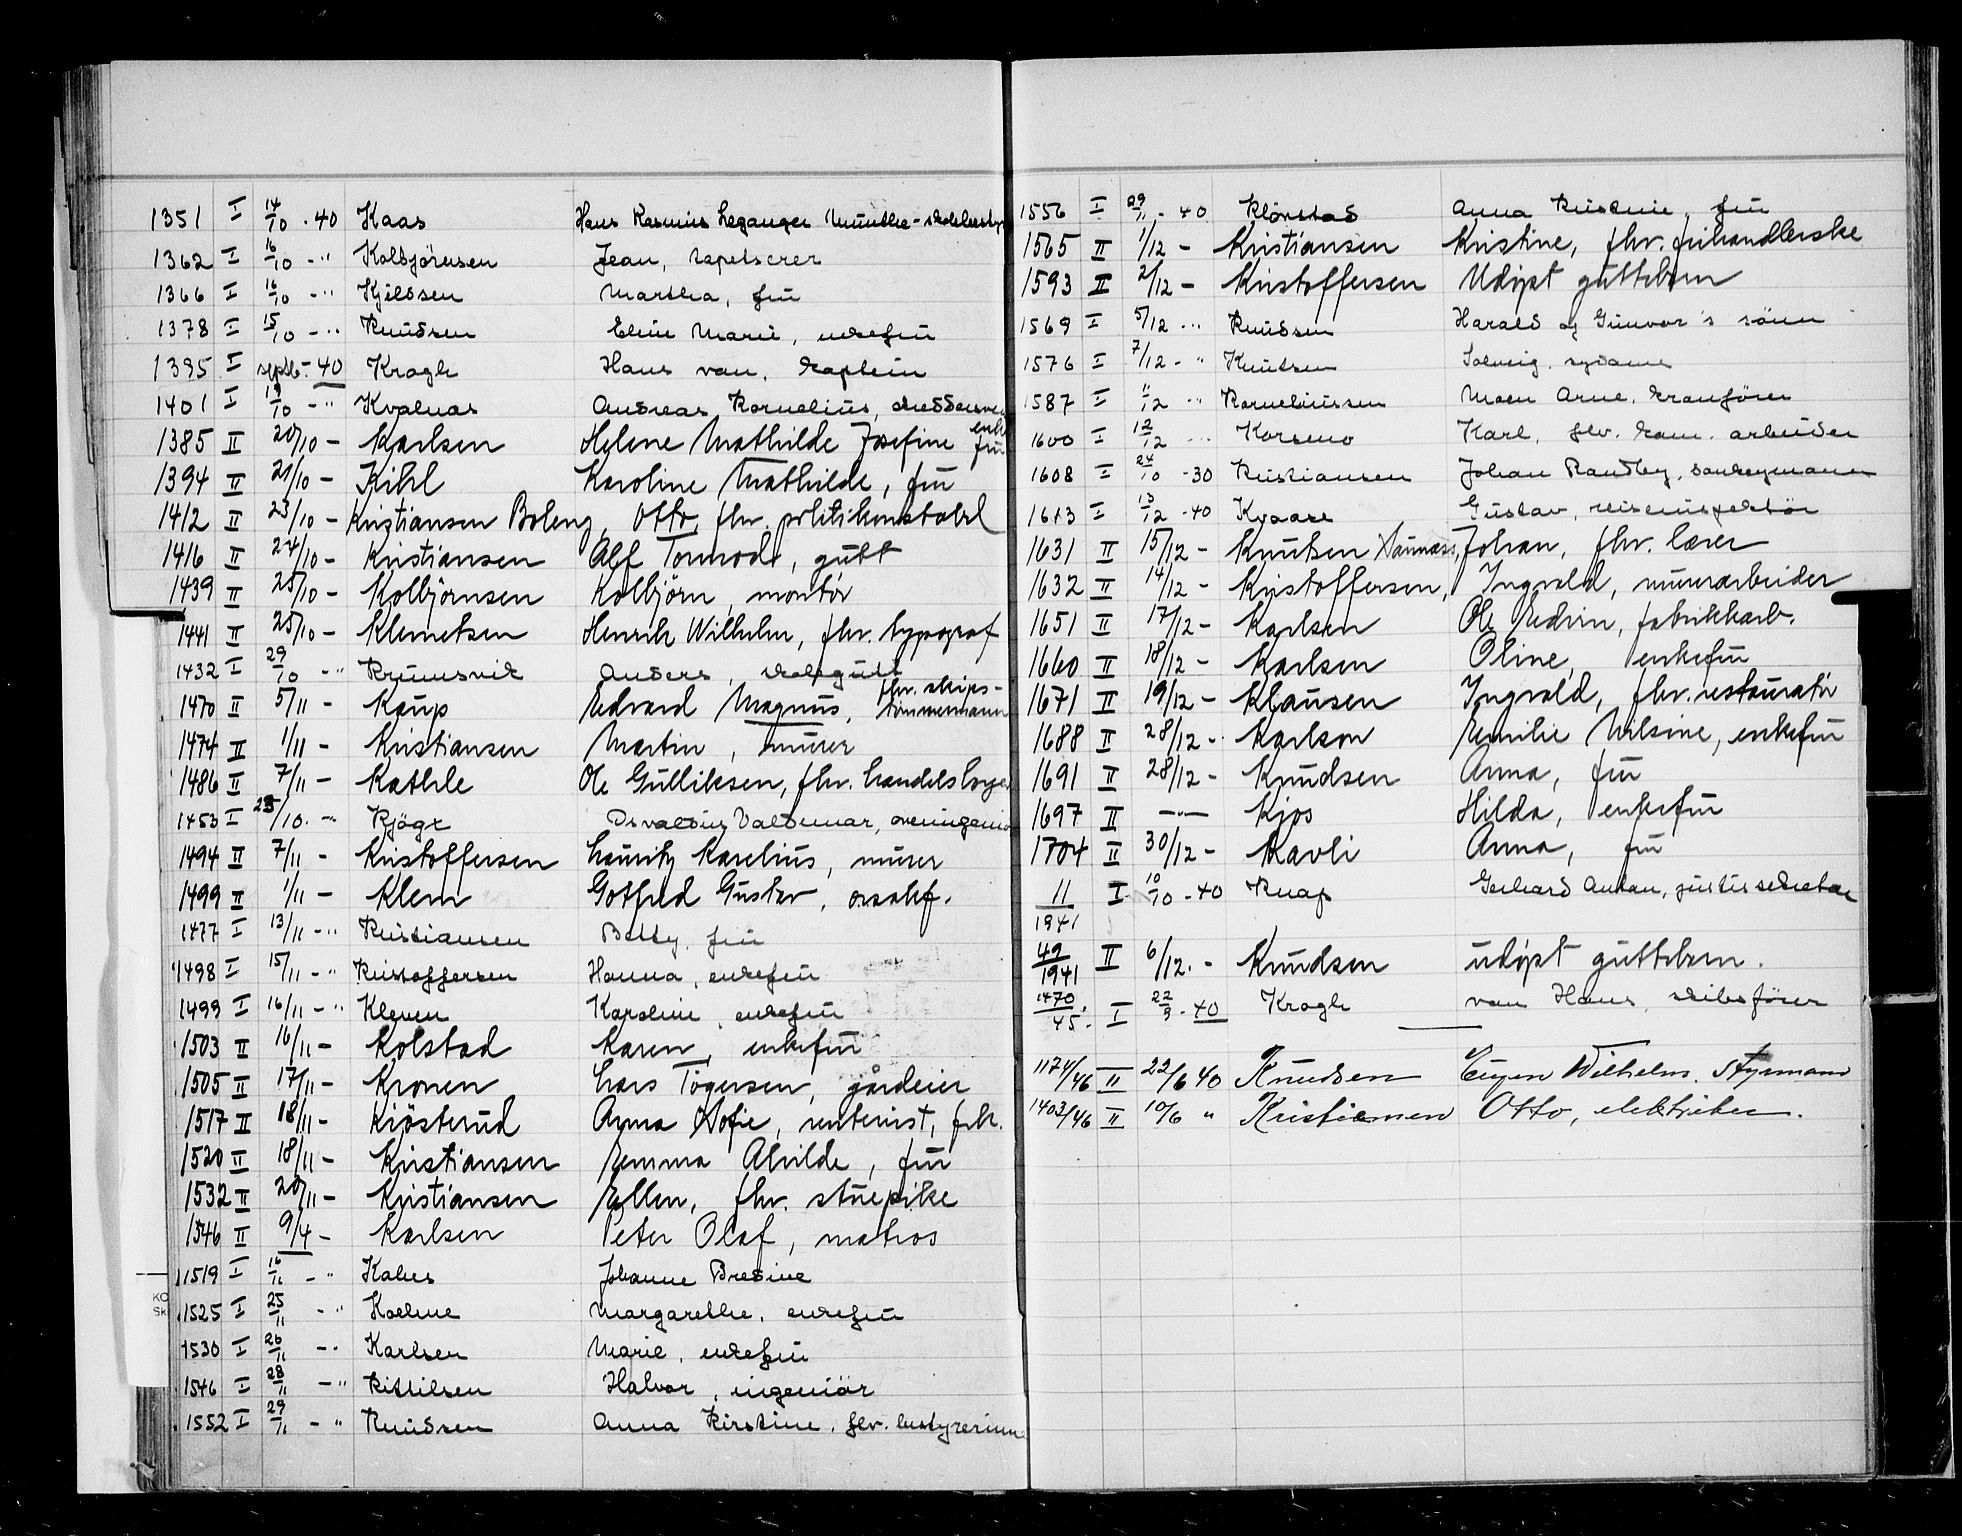 1351 I 14/10 - 40 Kaas Hans Rasmus Leganger Munthe - skolebesty
1362 I 16/10 - " Kolbjörnsen Jean, tapetserer
1366 I 16/10 - " Kjeldsen Martha, frü
1378 I 15/10 - " Knüdsen Eline Marie, enkefrü
1395 I septb. - 40 Kragh Hans van, kaptein
1401 I 19/10 - " Kvalnas Andreas Kornelius,
1385 II 20/10 - Karlsen Helene Mathilde Josefine enkefrü
1394 II 21/10 - Kihl Karoline Mathilde, frü
1412 II 23/10 - Kristiansen Boleng, Otto, fhv. politikonstabel
1416 II 24/10 - Kristiansen Alf Tormod, gütt
1439 II 25/10 - Kolbjörnsen Kolbjörn, montör
1441 II 25/10 - Klemetsen Henrik Wilhelm, fhv. typograf
1432 I 29/10 - " Krumsvik Anders, skolegütt
1470 II 5/11 - Kaup Edvard Magnus, fhv. skips-tömmermann
1474 II 1/11 - Kristiansen Martin, mürer
1486 II 7/11 - Kathle Ole Gülliksen, fhv. handelsborger
1453 I 25/10 - " Kjöge Osvaldus Valdemar, overingeniö
1494 II 7/11 - Kristoffersen Lauritz Karelius, mürer
1499 II 1/11 - Klem Gotfred Gustav,
1477 I 13/11 - " Kristiansen Betty, frü
1498 I 15/11 - " Kristoffersen Hanna, enkefrü
1499 I 16/11 - " Kleven Karoline, enkefrü
1503 II 16/11 - Kolstad Karen, enkefrü
1505 II 17/11 - Kronen Lars Tögersen, gårdeier
1517 II 18/11 - Kjösterud Anna Sofie, rentenist, frk.
1520 II 18/11 - Kristiansen Emma Alvilde, frü
1532 II 20/11 - Kristiansen Ellen, fhv. stüepike
1346 II 9/4 - Karlsen Peter Olaf, matros
1519 I 16/11 - " Kahrs Johanne Bredine
1525 I 25/11 - " Kaelme Margarethe, enkefrü
1530 I 26/11 - " Karlsen Marie, enkefrü
1546 I 28/11 - " Kittilsen Halvor, ingeniör
1552 I 29/11 - " Knüdsen Anna Kirstine, fhv. bestyrerinne
1556 I 29/11 - 40 Klönstad Anna Kristine, frü
1565 II 1/12 - Kristiansen Kristine, fhv. frihandlerske
1593 II 2/12 - Kristoffersen Udöpt güttebarn
1569 I 5/12 - " Knüdsen Harald og Günvor's sönn
1576 I 7/12 - " Knütsen Solveig, sydame
1587 I 11/12 " Korneliussen Moen Arne, kranförer
1600 I 12/12 - " Korsmo Karl, fhv. kom. arbeider
1608 I 24/10 - 30 Kristiansen Johan Randby, donkeymann
1613 I 13/12 - 40 Kvaase Gustav, reiseinspektör
1631 II 15/12 - Knütsen Johan, fhv. lærer
1632 II 14/12 - Kristoffersen, Ingvald, mürerarbeider
1651 II 17/12 - Karlsen Ole Edvin, fabrikkarb.
1660 II 18/12 - Karlsen Oline, enkefrü
1671 II 19/12 - Klausen Ingvald, fhv. restauratör
1688 II 28/12 - Karlson Emilie Nilsine, enkefrü
1691 II 28/12 - Knüdsen Anna, frü
1697 II — Kjos Hilda, enkefrü
1704 II 30/12 - Kavli Anna, frü
11/1941 I 10/10 - 40 Knap Gerhard Anton, justissekretær
49/1941 II 6/12 - Knüdsen udöpt güttebarn.
1470/45. I 22/3 - 40 Kragh van Hans, skibsförer
1174/46 II 22/6 40 Knudsen Eugen Wilhelm. Styrmann
1403/46 II 10/6 " Kristiansen Otto, elektriker.